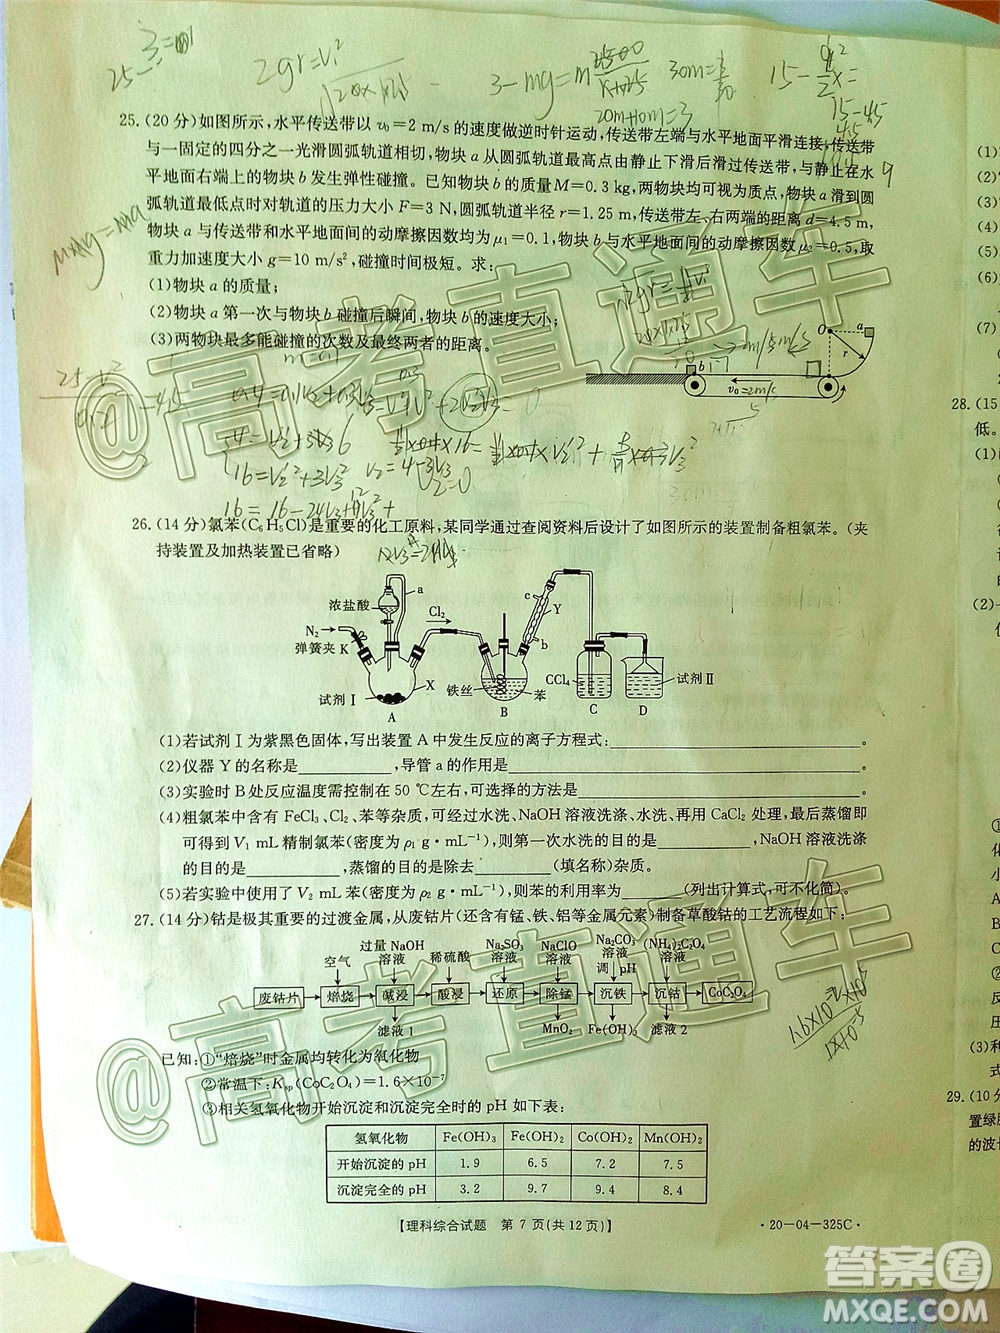 25.(20 分)如图所示,水平传送带以 v₀=2 m/s 的速度做逆时针运动,传送带左端与水平地面平滑连接,传送带
与一固定的四分之一光滑圆弧轨道相切,物块 a 从圆弧轨道最高点由静止下滑后滑过传送带,与水
平地面右端上的物块 b 发生弹性碰撞。已知物块 b 的质量 M=0.3 kg,两物块均可视为质点,物块 a 滑到圆
弧轨道最低点时对轨道的压力大小 F=3 N,圆弧轨道半径 r=1.25 m,传送带左、右两端的距离 d=4.5 m,
物块 a 与传送带和水平地面间的动摩擦因数均为 μ₁=0.1,物块 b 与地面间的动摩擦因数 μ₂=0.5,取
重力加速度大小 g=10 m/s²,碰撞时间极短。求:
(1)物块 a 的质量;
(2)物块 a 第一次与物块 b 碰撞后瞬间,物块 b 的速度大小;
(3)两物块最多能碰撞的次数及最终两者的距离。
O a
r
b
v₀=2m/s
26.(14 分)氯苯(C₆H₅Cl)是重要的化工原料,某同学通过查阅资料后设计了如图所示的装置制备粗氯苯。(夹
持装置及加热装置已省略)
浓盐酸 a Cl₂ c Y
N₂
弹簧夹 K
b
试剂Ⅰ X 铁丝 苯 CCl₄ 试剂Ⅱ
A B C D
(1)若试剂Ⅰ为紫黑色固体,写出装置 A 中发生反应的离子方程式:
(2)仪器 Y 的名称是,导管 a 的作用是
(3)实验时 B 处反应温度需控制在 50 ℃左右,可选择的方法是
(4)粗氯苯中含有 FeCl₃、Cl₂、苯等杂质,可经过水洗、NaOH 溶液洗涤、水洗、再用 CaCl₂ 处理,最后蒸馏即
可得到 V₁ mL 精制氯苯(密度为 ρ₁ g·mL⁻¹),则第一次水洗的目的是,NaOH 溶液洗涤
的目的是,蒸馏的目的是除去(填名称)杂质。
(5)若实验中使用了 V₂ mL 苯(密度为 ρ₂ g·mL⁻¹),则苯的利用率为(列出计算式,可不化简)。
27.(14 分)钴是极其重要的过渡金属,从废钴片(还含有锰、铁、铝等金属元素)制备草酸钴的工艺流程如下:
空气 过量 NaOH 溶液 稀硫酸 Na₂SO₃ 溶液 NaClO 溶液 Na₂CO₃ 溶液 调 pH (NH₄)₂C₂O₄ 溶液
废钴片 焙烧 碱浸 酸浸 还原 除锰 沉铁 沉钴 CoC₂O₄
滤液 1 MnO₂ Fe(OH)₃ 滤液 2
已知:①“焙烧”时金属均转化为氧化物
②常温下:Ksp(CoC₂O₄)=1.6×10⁻⁷
③相关氢氧化物开始沉淀和沉淀完全时的 pH 如下表:
氢氧化物 Fe(OH)₃ Fe(OH)₂ Co(OH)₂ Mn(OH)₂
开始沉淀的 pH 1.9 6.5 7.2 7.5
沉淀完全的 pH 3.2 9.7 9.4 8.4
【理科综合试题 第 7 页(共 12 页)】
·20—04—325C·
28.(15
低。
(1)
(2)
(3)
29.(10分
置绿
的波
@高考直通车
@高考直通车
答案圈
MXQE.COM